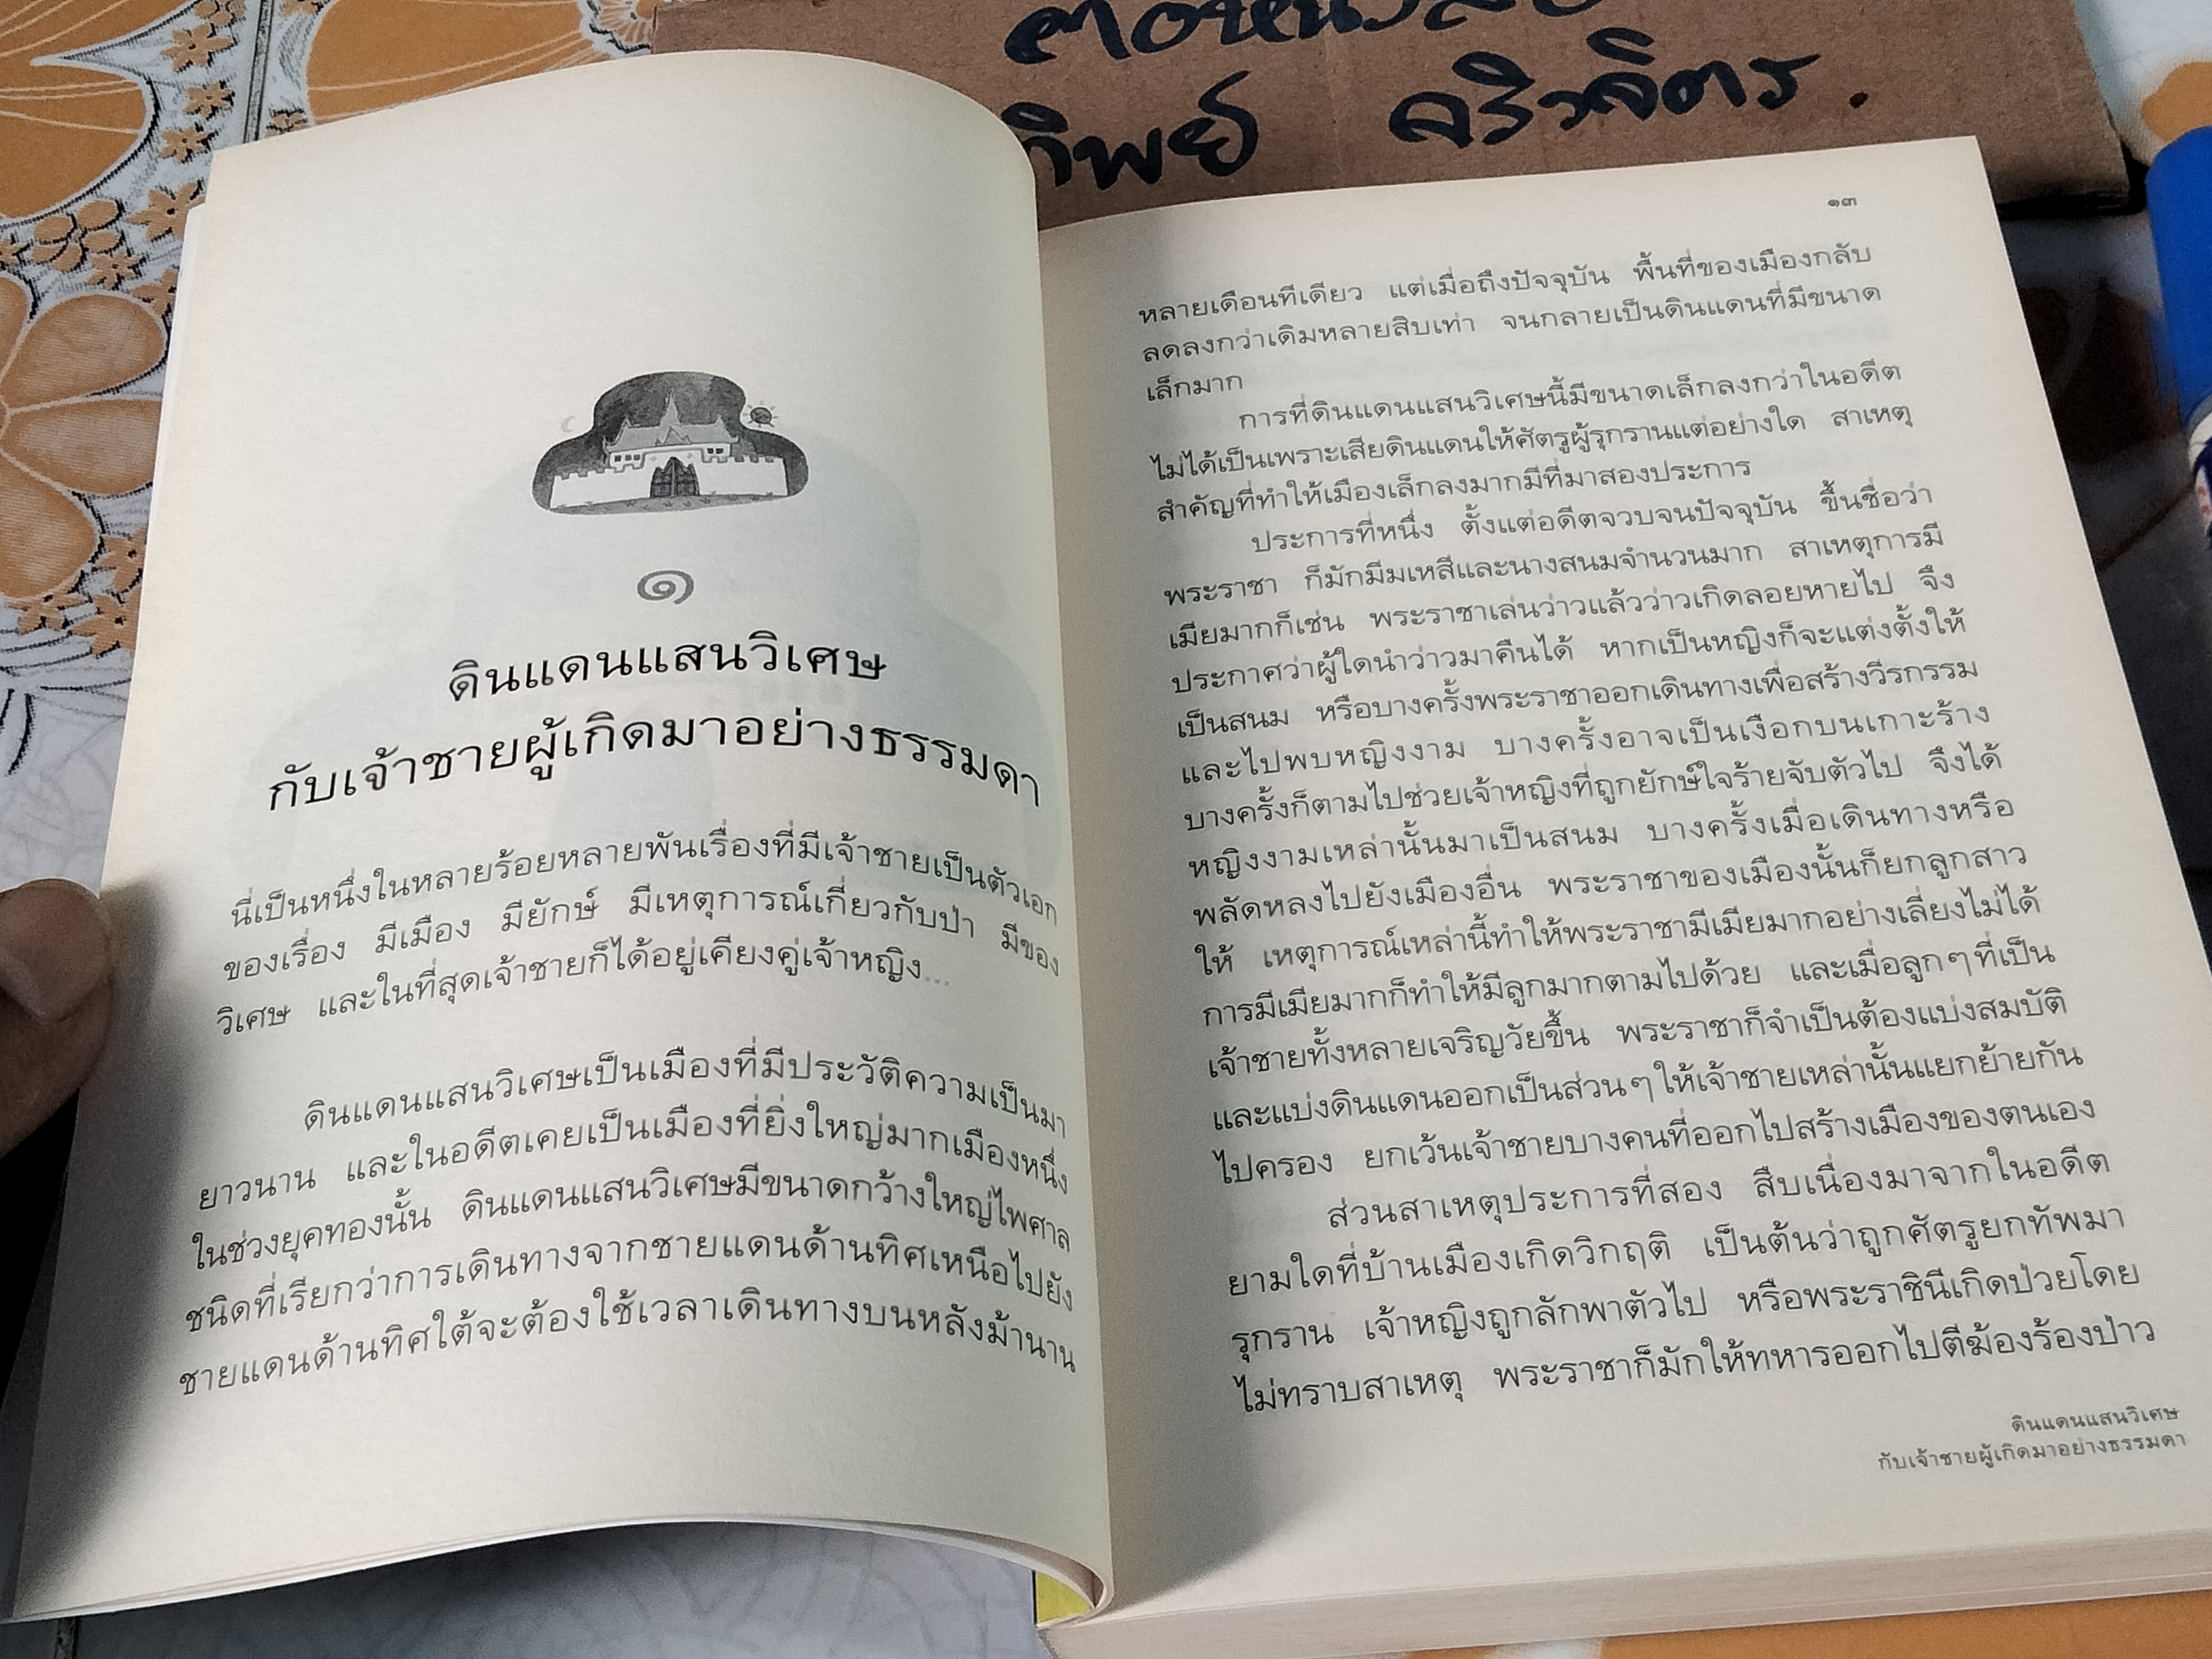 ทิพย์ ศรีวจิตร.
๑
ดินแดนแสนวิเศษ
กับเจ้าชายผู้เกิดมาอย่างธรรมดา
นี่เป็นหนึ่งในหลายร้อยหลายพันเรื่องที่มีเจ้าชายเป็นตัวเอก
ของเรื่อง มีเมือง มียักษ์ มีเหตุการณ์เกี่ยวกับป่า มีของ
วิเศษ และในที่สุดเจ้าชายก็ได้อยู่เคียงคู่เจ้าหญิง...
ดินแดนแสนวิเศษเป็นเมืองที่มีประวัติความเป็นมา
ยาวนาน และในอดีตเคยเป็นเมืองที่ยิ่งใหญ่มากเมืองหนึ่ง
ในช่วงยุคทองนั้น ดินแดนแสนวิเศษมีขนาดกว้างใหญ่ไพศาล
ชนิดที่เรียกว่าการเดินทางจากชายแดนด้านทิศเหนือไปยัง
ชายแดนด้านทิศใต้จะต้องใช้เวลาเดินทางบนหลังม้านาน
๑๓
หลายเดือนทีเดียว แต่เมื่อถึงปัจจุบัน พื้นที่ของเมืองกลับ
ลดลงกว่าเดิมหลายสิบเท่า จนกลายเป็นดินแดนที่มีขนาด
เล็กมาก
การที่ดินแดนแสนวิเศษนี้มีขนาดเล็กลงกว่าในอดีต
ไม่ได้เป็นเพราะเสียดินแดนให้ศัตรูผู้รุกรานแต่อย่างใด สาเหตุ
สำคัญที่ทำให้เมืองเล็กลงมากมีที่มาสองประการ
ประการที่หนึ่ง ตั้งแต่อดีตจวบจนปัจจุบัน ขึ้นชื่อว่า
พระราชา ก็มักมีมเหสีและนางสนมจำนวนมาก สาเหตุการมี
เมียมากก็เช่น พระราชาเล่นว่าวแล้วว่าวเกิดลอยหายไป จึง
ประกาศว่าผู้ใดนำว่าวมาคืนได้ หากเป็นหญิงก็จะแต่งตั้งให้
เป็นสนม หรือบางครั้งพระราชาออกเดินทางเพื่อสร้างวีรกรรม
และไปพบหญิงงาม บางครั้งอาจเป็นเงือกบนเกาะร้าง
บางครั้งก็ตามไปช่วยเจ้าหญิงที่ถูกยักษ์ใจร้ายจับตัวไป จึงได้
หญิงงามเหล่านั้นมาเป็นสนม บางครั้งเมื่อเดินทางหรือ
พลัดหลงไปยังเมืองอื่น พระราชาของเมืองนั้นก็ยกลูกสาว
ให้ เหตุการณ์เหล่านี้ทำให้พระราชามีเมียมากอย่างเลี่ยงไม่ได้
การมีเมียมากก็ทำให้มีลูกมากตามไปด้วย และเมื่อลูกๆที่เป็น
เจ้าชายทั้งหลายเจริญวัยขึ้น พระราชาก็จำเป็นต้องแบ่งสมบัติ
และแบ่งดินแดนออกเป็นส่วนๆให้เจ้าชายเหล่านั้นแยกย้ายกัน
ไปครอง ยกเว้นเจ้าชายบางคนที่ออกไปสร้างเมืองของตนเอง
ส่วนสาเหตุประการที่สอง สืบเนื่องมาจากในอดีต
ยามใดที่บ้านเมืองเกิดวิกฤติ เป็นต้นว่าถูกศัตรูยกทัพมา
รุกราน เจ้าหญิงถูกลักพาตัวไป หรือพระราชินีเกิดป่วยโดย
ไม่ทราบสาเหตุ พระราชาก็มักให้ทหารออกไปตีฆ้องร้องป่าว
ดินแดนแสนวิเศษ
กับเจ้าชายผู้เกิดมาอย่างธรรมดา